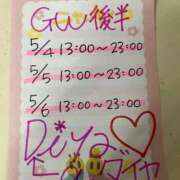 GW後半
5/4 13:00〜23:00
5/5 13:00〜23:00
5/6 13:00〜23:00
Diya♡